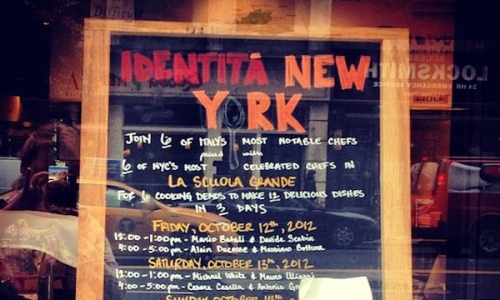 IDENTITÀ NEW
YORK
JOIN 6 OF ITALY'S MOST NOTABLE CHEFS
paired with
6 OF NYC'S MOST CELEBRATED CHEFS IN
LA SCUOLA GRANDE
FOR 6 COOKING DEMOS TO MAKE 12 DELICIOUS DISHES
IN 3 DAYS
FRIDAY, OCTOBER 12th, 2012
12:00 - 1:00pm - Mario Batali & Davide Scabin
4:00 - 5:00pm - Alain Ducasse & Massimo Bottura
SATURDAY, OCTOBER 13th, 2012
12:00 - 1:00pm - Michael White & Mauro Uliassi
4:00 - 5:00pm - Cesare Casella & Antonio
SUNDAY OCTOBER
LOCKSMITH
24 HR EMERGENCY SERVICE